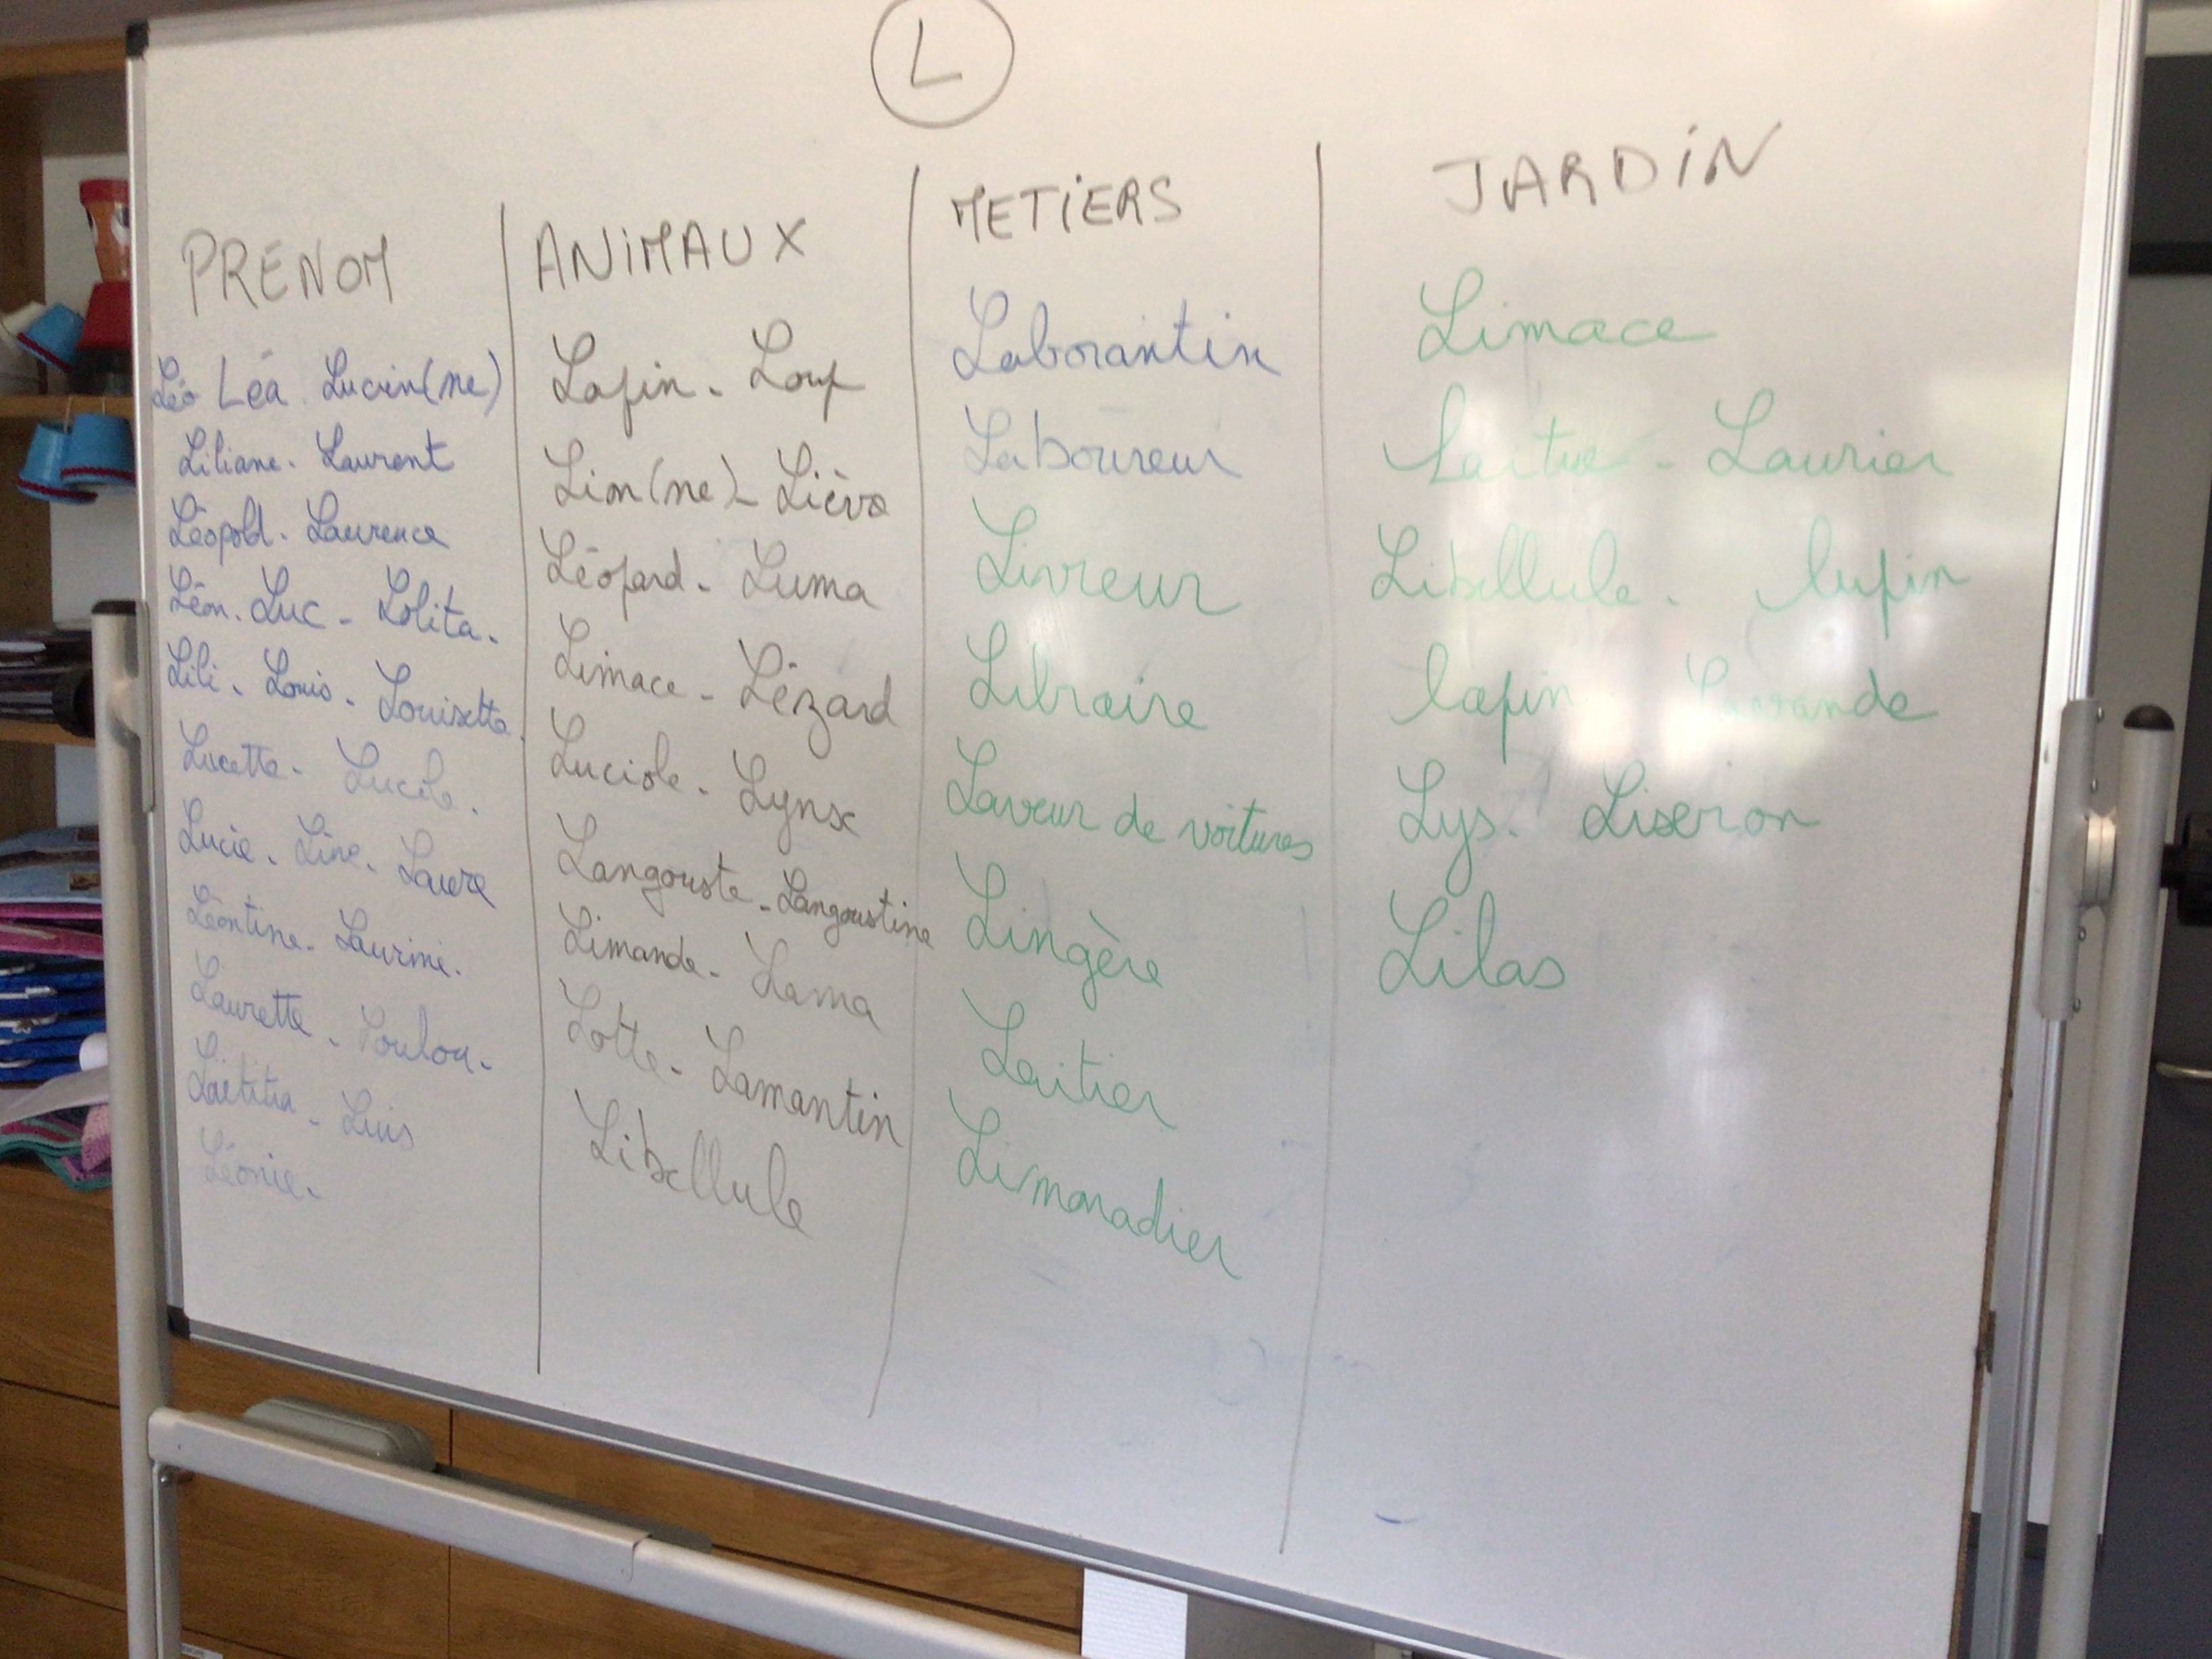 L
PRENOM
Léo Léa Lucien(ne)
Liliane. Laurent
Léopold. Laurence
Léon. Luc - Lolita.
Lili. Louis. Louisette.
Lucette. Lucile.
Lucie. Line. Laure
Léontine. Laurine.
Laurette. Loulou.
Laëtitia - Luis
Léonie.
ANIMAUX
Lapin. Loup
Lion(ne) - Lièvre
Léopard - Luma
Limace - Lézard
Luciole. Lynx
Langouste - Langoustine
Limande - Lama
Lotte - Lamantin
Libellule
METIERS
Laborantin
Laboureur
Livreur
Libraire
Laveur de voitures
Lingère
Laitier
Limonadier
JARDIN
Limace
Laitue - Laurier
Libellule. lupin
lapin Lavande
Lys. Liseron
Lilas